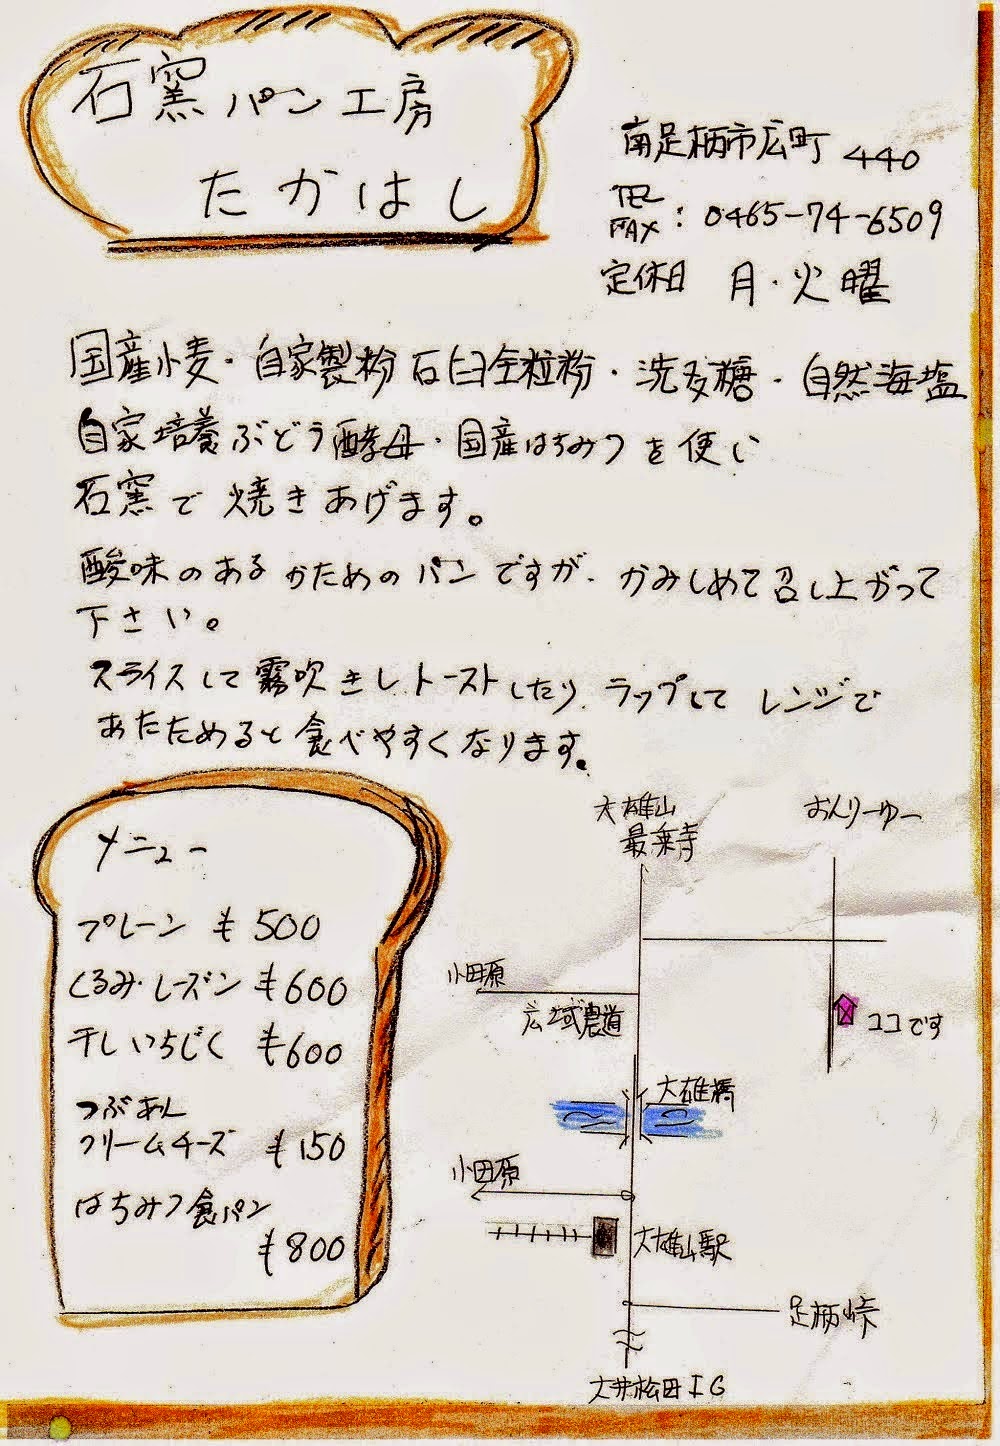 石窯パン工房
たかはし
南足柄市広町 440
TEL
FAX : 0465-74-6509
定休日 月・火曜
国産小麦・自家製粉石臼全粒粉・洗双糖・自然海塩
自家培養ぶどう酵母・国産はちみつを使い
石窯で焼きあげます。
酸味のあるかためのパンですが、かみしめて召し上がって
下さい。
スライスして霧吹きしトーストしたり、ラップしてレンジで
あたためると食べやすくなります。
メニュー
プレーン ¥500
くるみ・レーズン ¥600
干しいちじく ¥600
つぶあん
クリームチーズ ¥150
はちみつ食パン
¥800
大雄山
最乗寺
おんりーゆー
小田原
広域農道
ココです
大雄橋
小田原
大雄山駅
足柄峠
大井松田IC